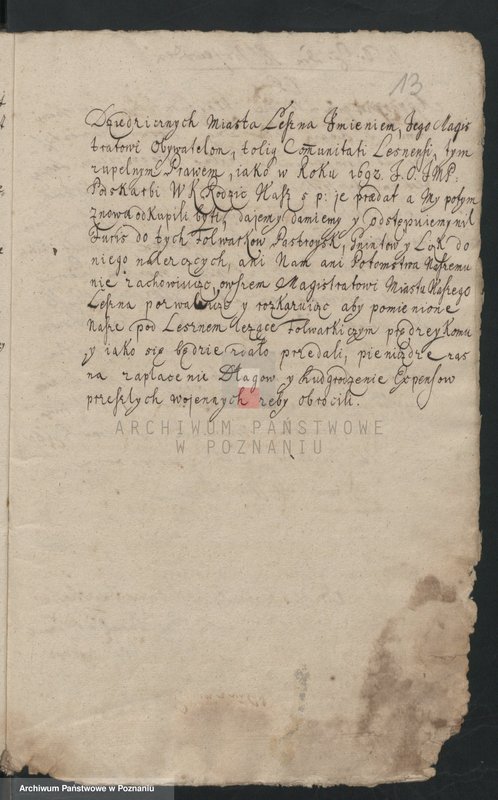 13
Dziedzicznych Miasta Leszna Imieniem, Jego Magis
tratowi Obywatelom, tolig Comunitati Lesnensi, tym
zupelnym Prawem, iako w Roku 1692. J.O. JMP.
Podskarbi W.K. Rodzic Nasz s p: je przedał a My potym
znowu odkupili byli, dajemy damiemy y odstępujemy nil
Juris do tych Folwarkow Pastroysk, Gruntow y Łąk do
niego należących, ani Nam ani Potomstwu Naszemu
nie zachowuiąc, owszem Magistratowi Miasta Naszego
Leszna pozwalaiąc y rozkazuiąc aby pomienione
Nasze pod Lesznem leżące Folwarki czym prędzey komu
y iako się będzie zdało przedali, pieniądze zas
na zapłacenie Długow y Nadgrodzenie Expensow
przeszłych wojennych żeby obrocili.
ARCHIWUM PAŃSTWOWE
W POZNANIU
Archiwum Państwowe w Poznaniu